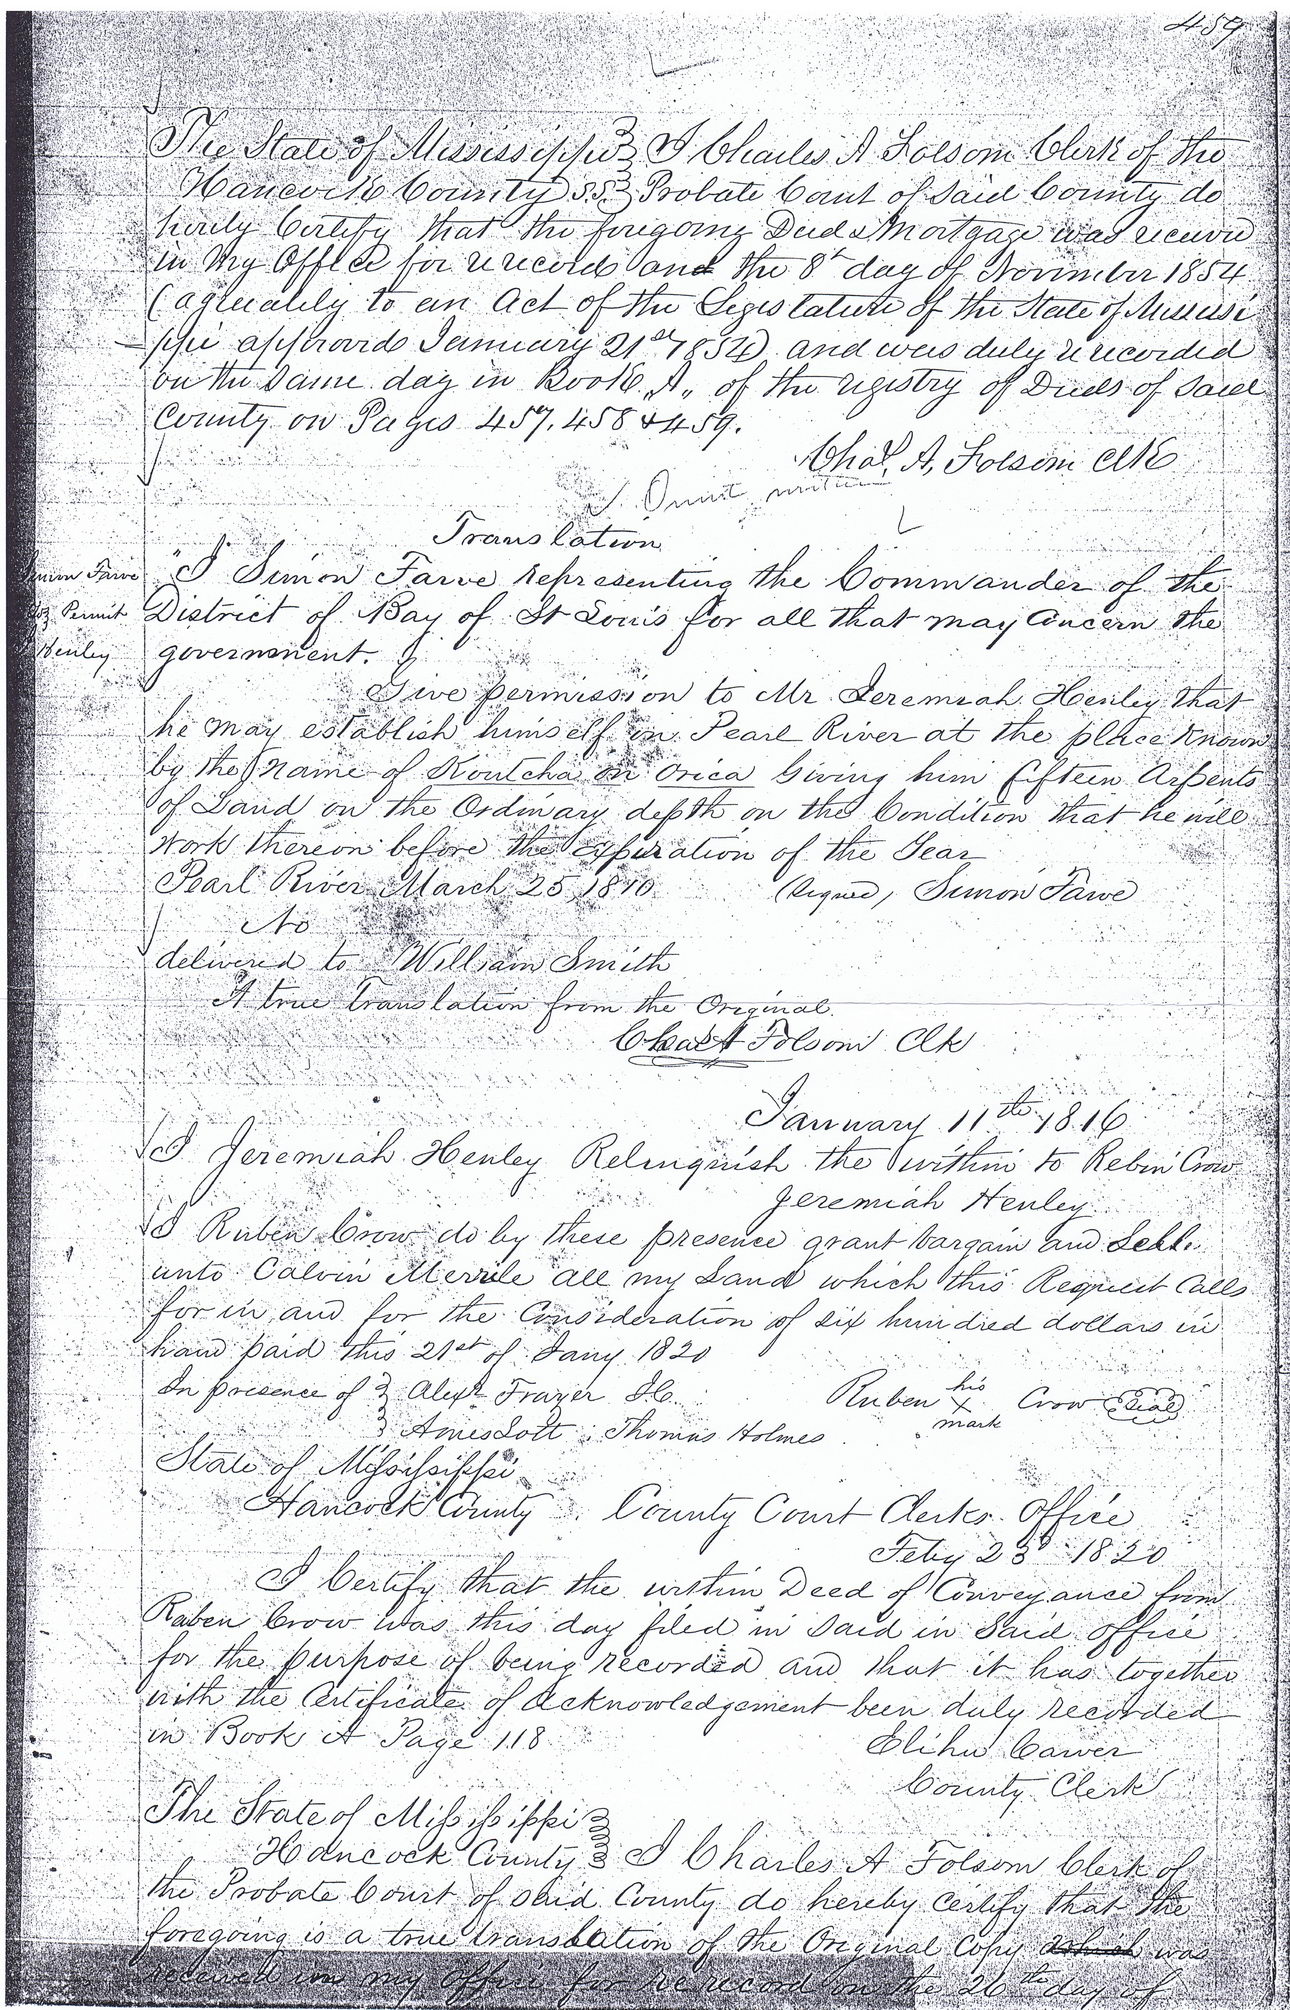 459
The State of Mississippi } I Charles A Folsom Clerk of the
Hancock County ss. } Probate Court of said County do
herily Certify that the foregoing Deed & Mortgage was receivd
in My Office for rerecord and the 8th day of November 1854
(agreeably to an Act of the Legislature of the State of Mississi
ppi approvd January 21st 1854) and was duly rerecorded
on the same day in Book "A" of the registry of Deeds of said
County on Pages 457, 458 & 459.
Chas. A, Folsom Clk
Translation
Simon Farve
Permit
Henley
"I Simon Farve representing the Commander of the
District of Bay of St Louis for all that may Concern the
government.
Give permission to Mr Jeremiah Henley that
he may establish himself in Pearl River at the place Known
by the Name of Koutcha on Orica Giving him fifteen Arpents
of Land on the Ordinary depth on the Condition that he will
Work thereon before the expiration of the Year
Pearl River March 25, 1810 (Signed) Simon Farve
No
delivered to William Smith
A true translation from the Original.
Chas A Folsom Clk
January 11th 1816
I Jeremiah Henley Relinquish the within to Rebin Crow
Jeremiah Henley
I Ruben Crow do by these presence grant bargain and Selle
unto Calvin Merrile all my Land which this Request Calls
for in and for the Consideration of six hundred dollars in
hand paid this 21st of Jany 1820
In presence of } Alexr Frazer
} Amos Lott ; Thomas Holmes
Ruben his X mark Crow (Seal)
State of Mississippi
Hancock County . County Court Clerks Office
Feby 23d 1820
I Certify that the within Deed of Conveyance from
Ruben Crow was this day filed in Said in Said office
for the purpose of being recorded and that it has together
with the Certificate of Acknowledgement been duly recorded
in Book A Page 118
Elihu Carver
County Clerk
The State of Mississippi }
Hancock County } I Charles A Folsom Clerk of
the Probate Court of said County do hereby Certify that the
foregoing is a true translation of the Original Copy which was
received in my Office for rerecord on the 26th day of